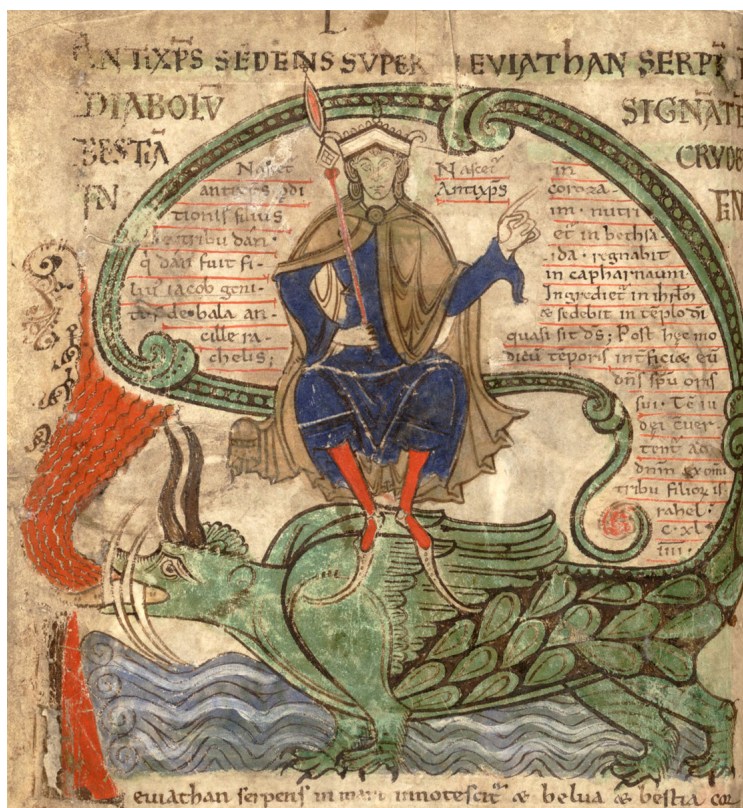 L
ANTIXP̄S SEDENS SUPER LEVIATHAN SERPĒ
DIABOLŪ SIGNATĒ
BESTIĀ CRUDE
IN FIN
Nascet
antixp̄s p̄di
tionis filius
de tribu dan·
q̄ dan fuit fi-
lius iacob geni-
tus de bala an-
cille ra-
chelis;
Nascet̄
Antixp̄s
in
coroza-
im· nutri
et̄ in bethsa-
ida· regnabit
in capharnaum·
Ingrediet̄ in ihrl̄m
& sedebit in tēplo d̄i
quasi sit d̄s; Post hęc mo
dicū tēporis int̄ficiæ eū
dn̄s sp̄u oris
sui· Tē iu
dei c̄uer-
tent̄ ad
dnm̄ ex omi
tribu filior is
rahel·
c· xl
iiii·
eviathan serpens in mari innotescit̄ & belua & bestia cor